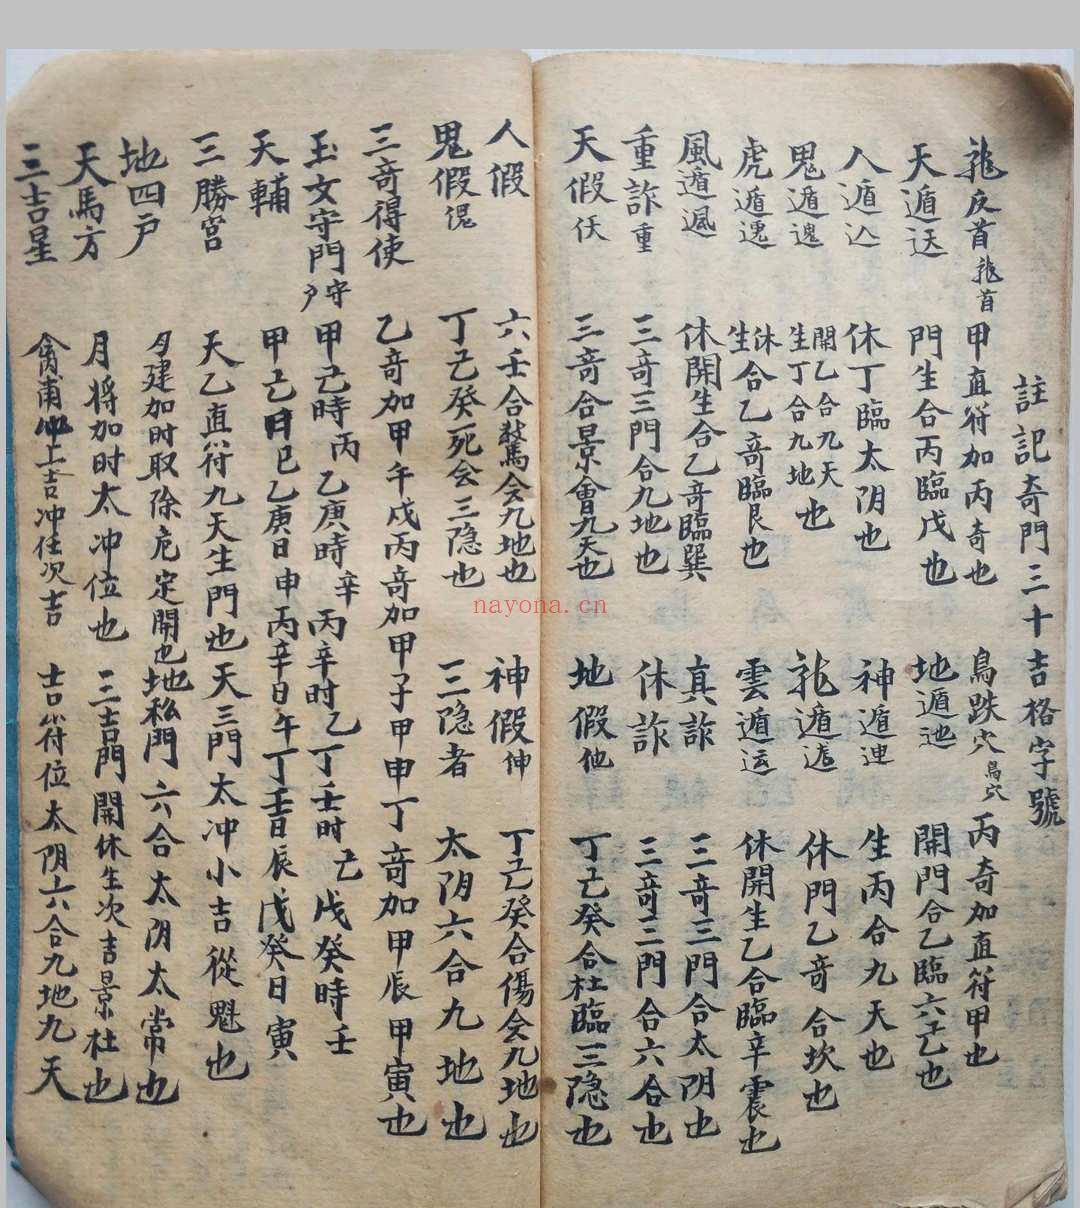 註記奇門三十吉格字號
龍反首龍首 甲直符加丙奇也 鳥跌穴鳥穴 丙奇加直符甲也
天遁迗 門生合丙臨戊也 地遁迆 開門合乙臨六己也
人遁 休丁臨太阴也 神遁 生丙合九天也
鬼遁 開乙合九天生丁合九地也 龍遁 休門乙奇合坎也
虎遁 休生合乙奇臨艮也 雲遁运 休開生乙合臨辛震也
風遁 休開生合乙奇臨巽 真詐 三奇三門合太阴也
重詐重 三奇三門合九地也 休詐 三奇三門合六合也
天假 三奇合景會九天也 地假他 丁己癸合杜臨三隐也
人假 六壬合驚会九地也 神假伸 丁己癸合傷会九地也
鬼假傀 丁己癸死会三隐也 三隐者 太阴六合九地也
三奇得使 乙奇加甲午戊丙奇加甲子甲申丁奇加甲辰甲寅也
玉女守門户守 甲己時丙 乙庚時辛 丙辛时乙 丁壬时己 戊癸時壬
天輔 甲己日巳乙庚日申丙辛日午丁壬日辰戊癸日寅
三勝宮 天乙直符九天生門也 天三門太冲小吉從魁也
地四户 月建加时取除危定開也 地私門 六合太阴太常也
天馬方 月将加时太冲位也 三吉門開休生次吉景杜也
三吉星 禽甫心上吉冲任次吉 吉符位太阴六合九地九天
nayona.cn